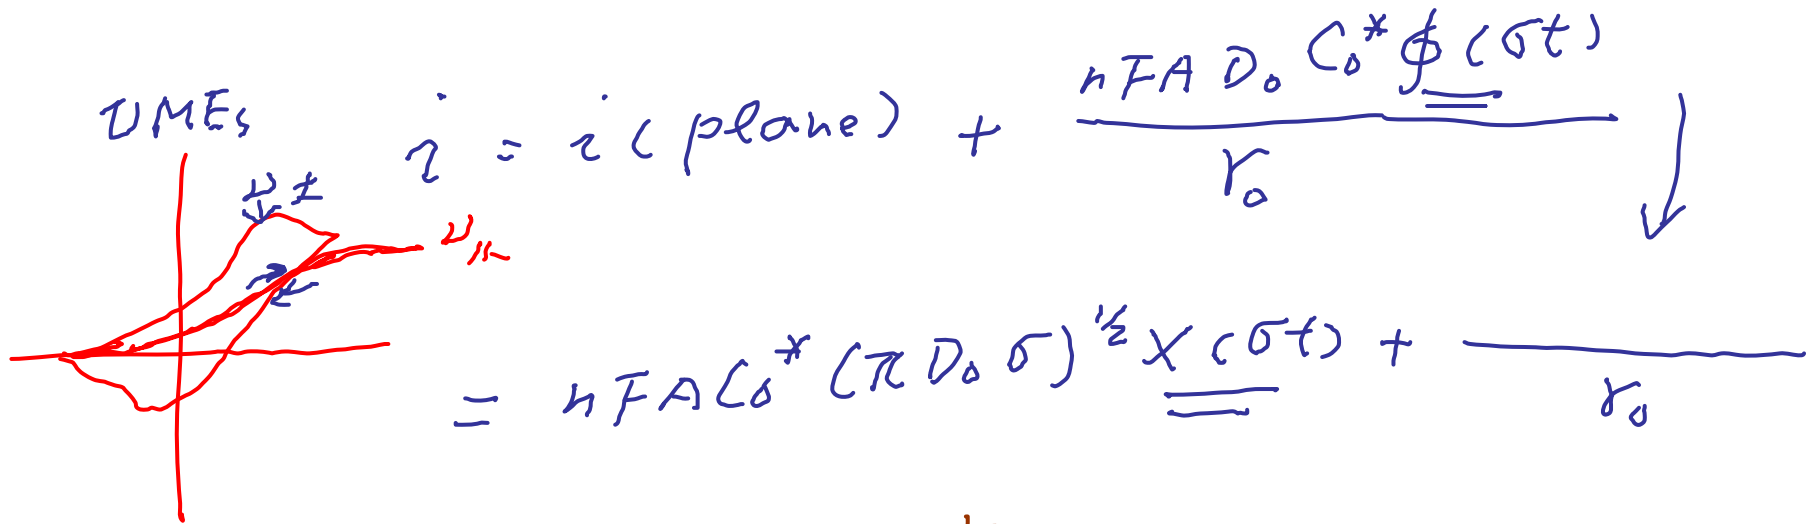 UMEs
i = i (plane) + nFA D₀ C₀* ϕ (σt) / r₀
ν↑
ν↓
= nFA C₀* (π D₀ σ)^1/2 χ (σt) + ___ / r₀